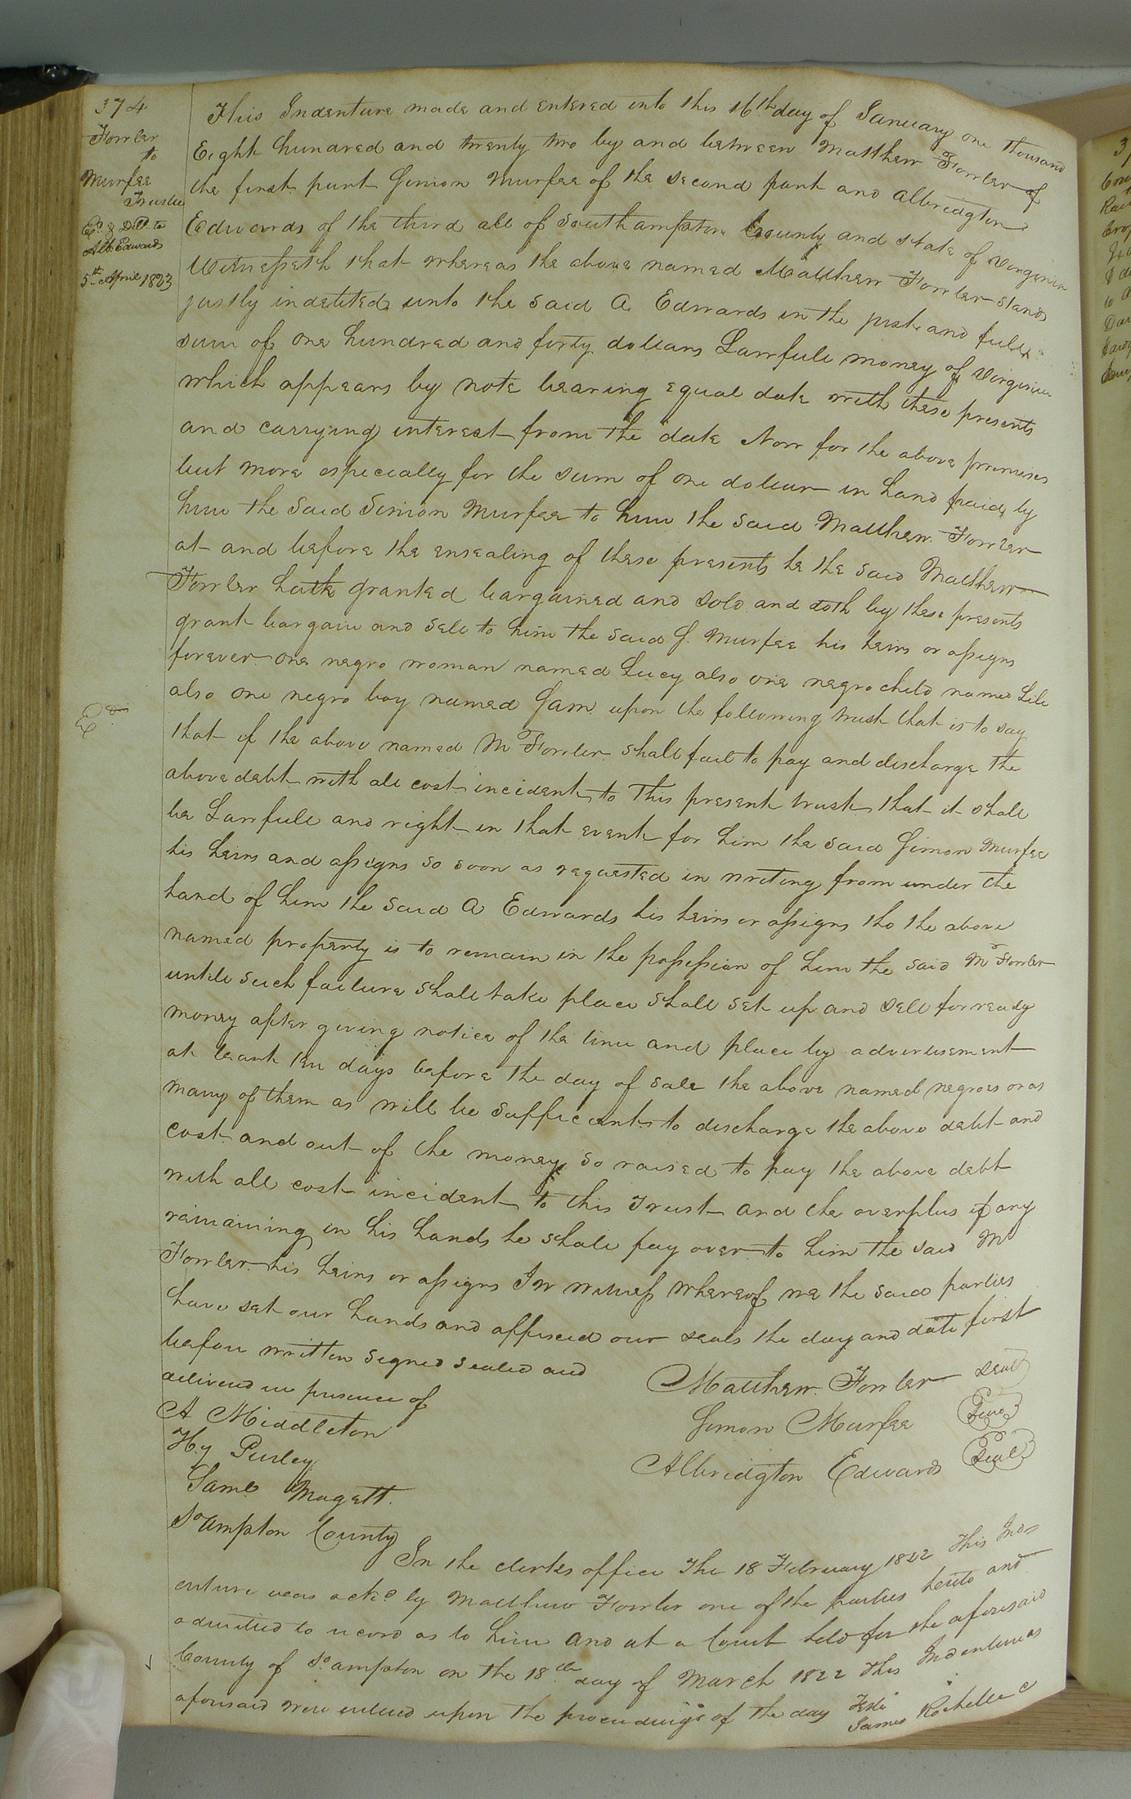 374
Fowler
to
Murfee
Trustee
Ex.d & Dd to
Alb. Edwards
5th April 1823
This Indenture made and entered into this 16th day of January one thousand
Eight hundred and twenty two by and between Matthew Fowler of
the first part Simon Murfee of the second part and Albridgton
Edwards of the third all of Southampton County and state of Virginia
Witnesseth that whereas the above named Matthew Fowler stands
justly indebted unto the said A Edwards in the just and full
sum of one hundred and forty dollars Lawfull money of Virginia
which appears by note bearing equal date with these presents
and carrying interest from the date Now for the above premises
but more especially for the sum of one dollar in hand paid by
him the said Simon Murfee to him the said Matthew Fowler
at and before the ensealing of these presents he the said Matthew
Fowler hath granted bargained and sold and doth by these presents
grant bargain and sell to him the said S. Murfee his heirs or assigns
forever one negro woman named Lucy also one negro child named Lile
also one negro boy named Sam upon the following trust that is to say
that if the above named M Fowler shall fail to pay and discharge the
above debt with all cost incident to this present trust that it shall
be Lawfull and right in that event for him the said Simon Murfee
his heirs and assigns so soon as requested in writing from under the
hand of him the said A Edwards his heirs or assigns tho the above
named property is to remain in the possession of him the said M Fowler
untill such failure shall take place shall set up and sell for ready
money after giving notice of the time and place by advertisement
at least ten days before the day of sale the above named negroes or as
many of them as will be sufficient to discharge the above debt and
cost and out of the money so raised to pay the above debt
with all cost incident to this Trust and the overplus if any
remaining in his hands he shall pay over to him the said M
Fowler his heirs or assigns In witness whereof we the said parties
have set our hands and affixed our seals the day and date first
before written signed sealed and
delivered in presence of
Matthew Fowler Seal
Simon Murfee Seal
Albridgton Edwards Seal
A Middleton
Hy Purley
Saml Magett.
So ampton County
In the clerks office the 18 February 1822 This Ind
enture was ackd by Matthew Fowler one of the parties hereto and
admitted to record as to him and at a Court held for the aforesaid
County of So ampton on the 18th day of March 1822 This Indenture as
aforesaid were entered upon the proceedings of the day Teste
James Rochelle C